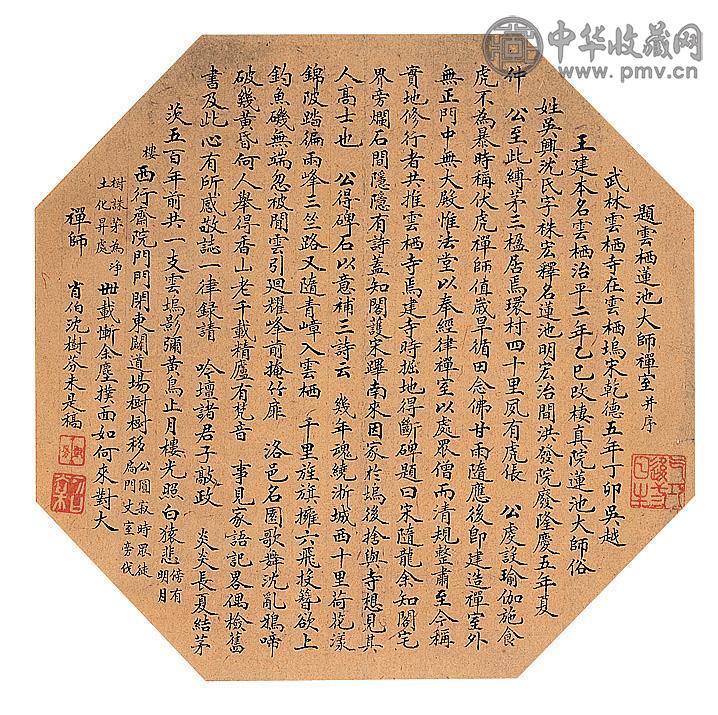 中华收藏网
www.pmv.cn
題雲栖蓮池大師禪室并序
武林雲栖寺在雲栖塢宋乾德五年丁卯吳越
王建本名雲栖治平二年乙巳改棲真院蓮池大師俗
姓吳興沈氏字袾宏釋名蓮池明宏治間洪發院廢隆慶五年夏
仲 公至此縛茅三楹居焉環村四十里夙有虎倀 公虔設瑜伽施食
虎不為暴時稱伏虎禪師值歲旱循田念佛甘雨隨應後即建造禪室外
無正門中無大殿惟法堂以奉經律禪室以處眾僧而清規整肅至今稱
實地修行者共推雲栖寺焉建寺時掘地得斷碑題曰宋隨龍余知閣宅
界旁爛石間隱隱有詩蓋知閣護宋蹕南來因家於塢後捨與寺想見其
人高士也 公得碑石以意補三詩云 幾年魂繞浙城西十里荷花漾
錦陂踏徧兩峰三竺路又隨青嶂入雲栖 千里旌旗擁六飛投簪欲上
釣魚磯無端忽被閒雲引迴耀峰前掩竹扉 洛邑名園歌舞沈亂鴉啼
破幾黃昏何人舉得香山老千載精廬有梵音 事見家語記畧偶檢舊
書及此心有所感敬誌一律錄請 吟壇諸君子敲政 炎炎長夏結茅
茨五百年前共一支雲塢影彌黃鳥止月樓光照白猿悲傍有明月
樓西行齋院門門閉東闢道場樹樹移公圓寂時眾徒扃門丈室旁伐
樹誅茅為浄土化昇處 卌載慚余塵撲面如何來對大
禪師 肖伯沈樹芬未是稿